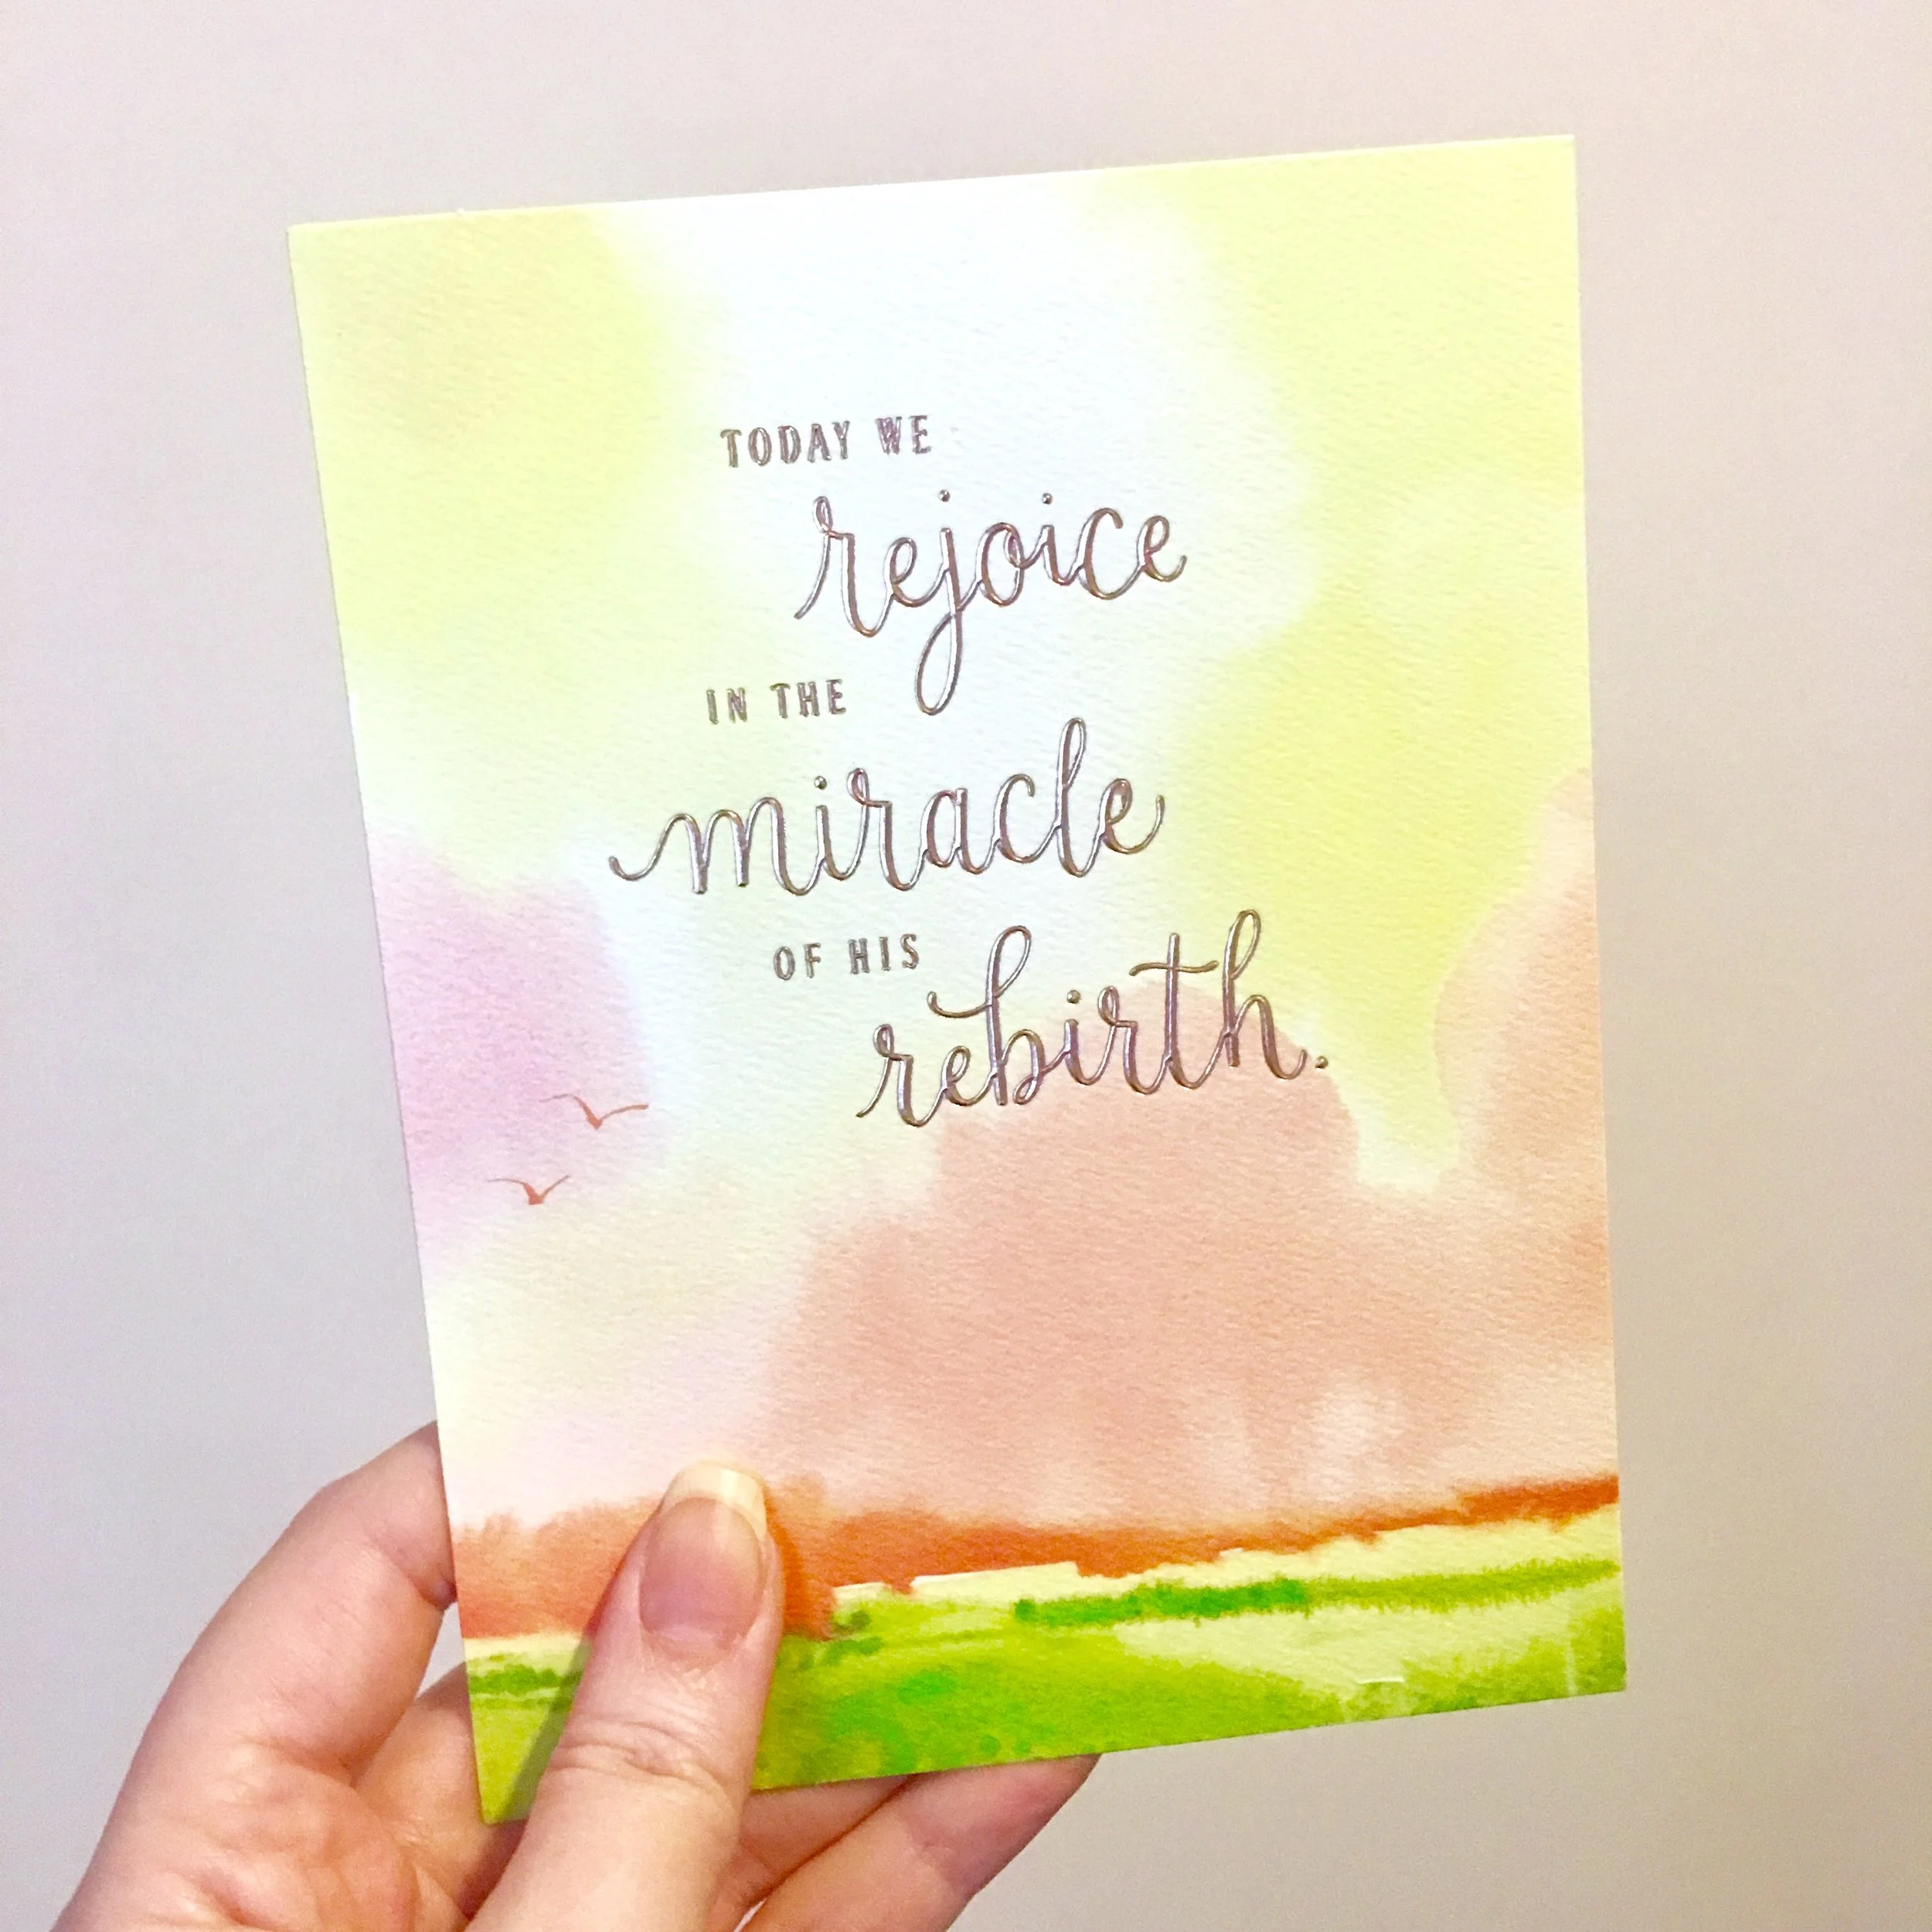 TODAY WE
rejoice
IN THE
miracle
OF HIS
rebirth.